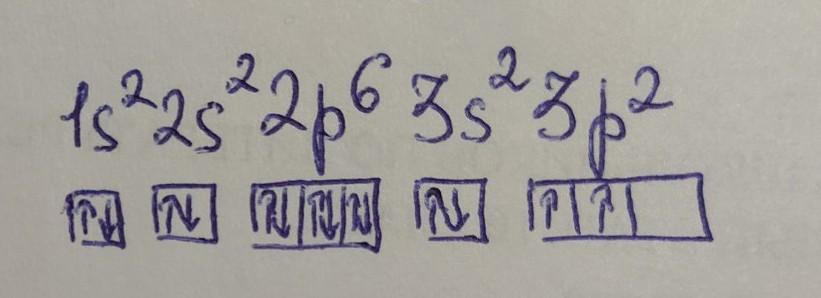 1s² 2s² 2p⁶ 3s² 3p²
↑↓ ↑↓ ↑↓ ↑↓ ↑↓ ↑↓ ↑ ↑